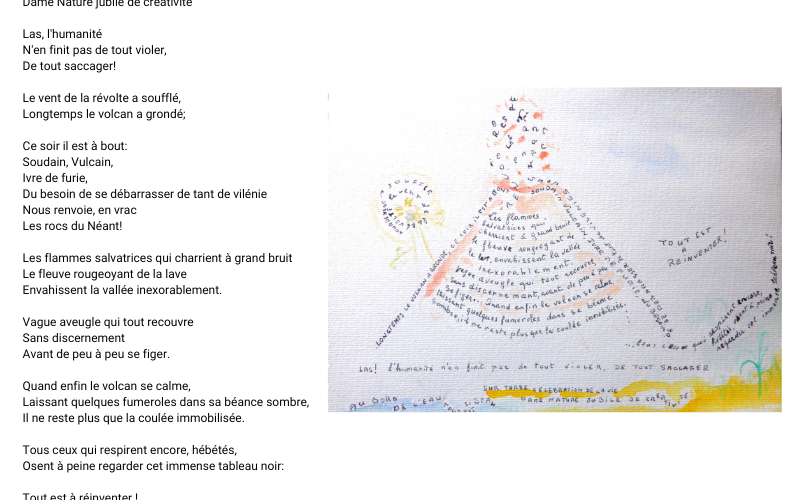 Dame Nature jubile de créativité
Las, l'humanité
N'en finit pas de tout violer,
De tout saccager!
Le vent de la révolte a soufflé,
Longtemps le volcan a grondé;
Ce soir il est à bout:
Soudain, Vulcain,
Ivre de furie,
Du besoin de se débarrasser de tant de vilénie
Nous renvoie, en vrac
Les rocs du Néant!
Les flammes salvatrices qui charrient à grand bruit
Le fleuve rougeoyant de la lave
Envahissent la vallée inexorablement.
Vague aveugle qui tout recouvre
Sans discernement
Avant de peu à peu se figer.
Quand enfin le volcan se calme,
Laissant quelques fumeroles dans sa béance sombre,
Il ne reste plus que la coulée immobilisée.
Tous ceux qui respirent encore, hébétés,
Osent à peine regarder cet immense tableau noir:
Tout est à réinventer !
Les flammes
salvatrices qui
charrient à grand bruit
le fleuve rougeoyant de
la lave, envahissent la vallée
inexorablement.
Vague aveugle qui tout recouvre,
sans discernement, avant de peu à peu
se figer. Quand enfin le volcan se calme,
laissant quelques fumeroles dans sa béance
sombre, il ne reste plus que la coulée immobilisée.
LONGTEMPS LE VOLCAN A GRONDÉ, CE SOIR IL EST À BOUT
TOUT EST
À
RÉINVENTER!
LAS! l'humanité n'en finit pas de tout VIOLER, DE TOUT SACCAGER
SUR TERRE CÉLÉBRATION DE LA VIE
AU BORD DE L'EAU
DAME NATURE JUBILE DE CRÉATIVITÉ